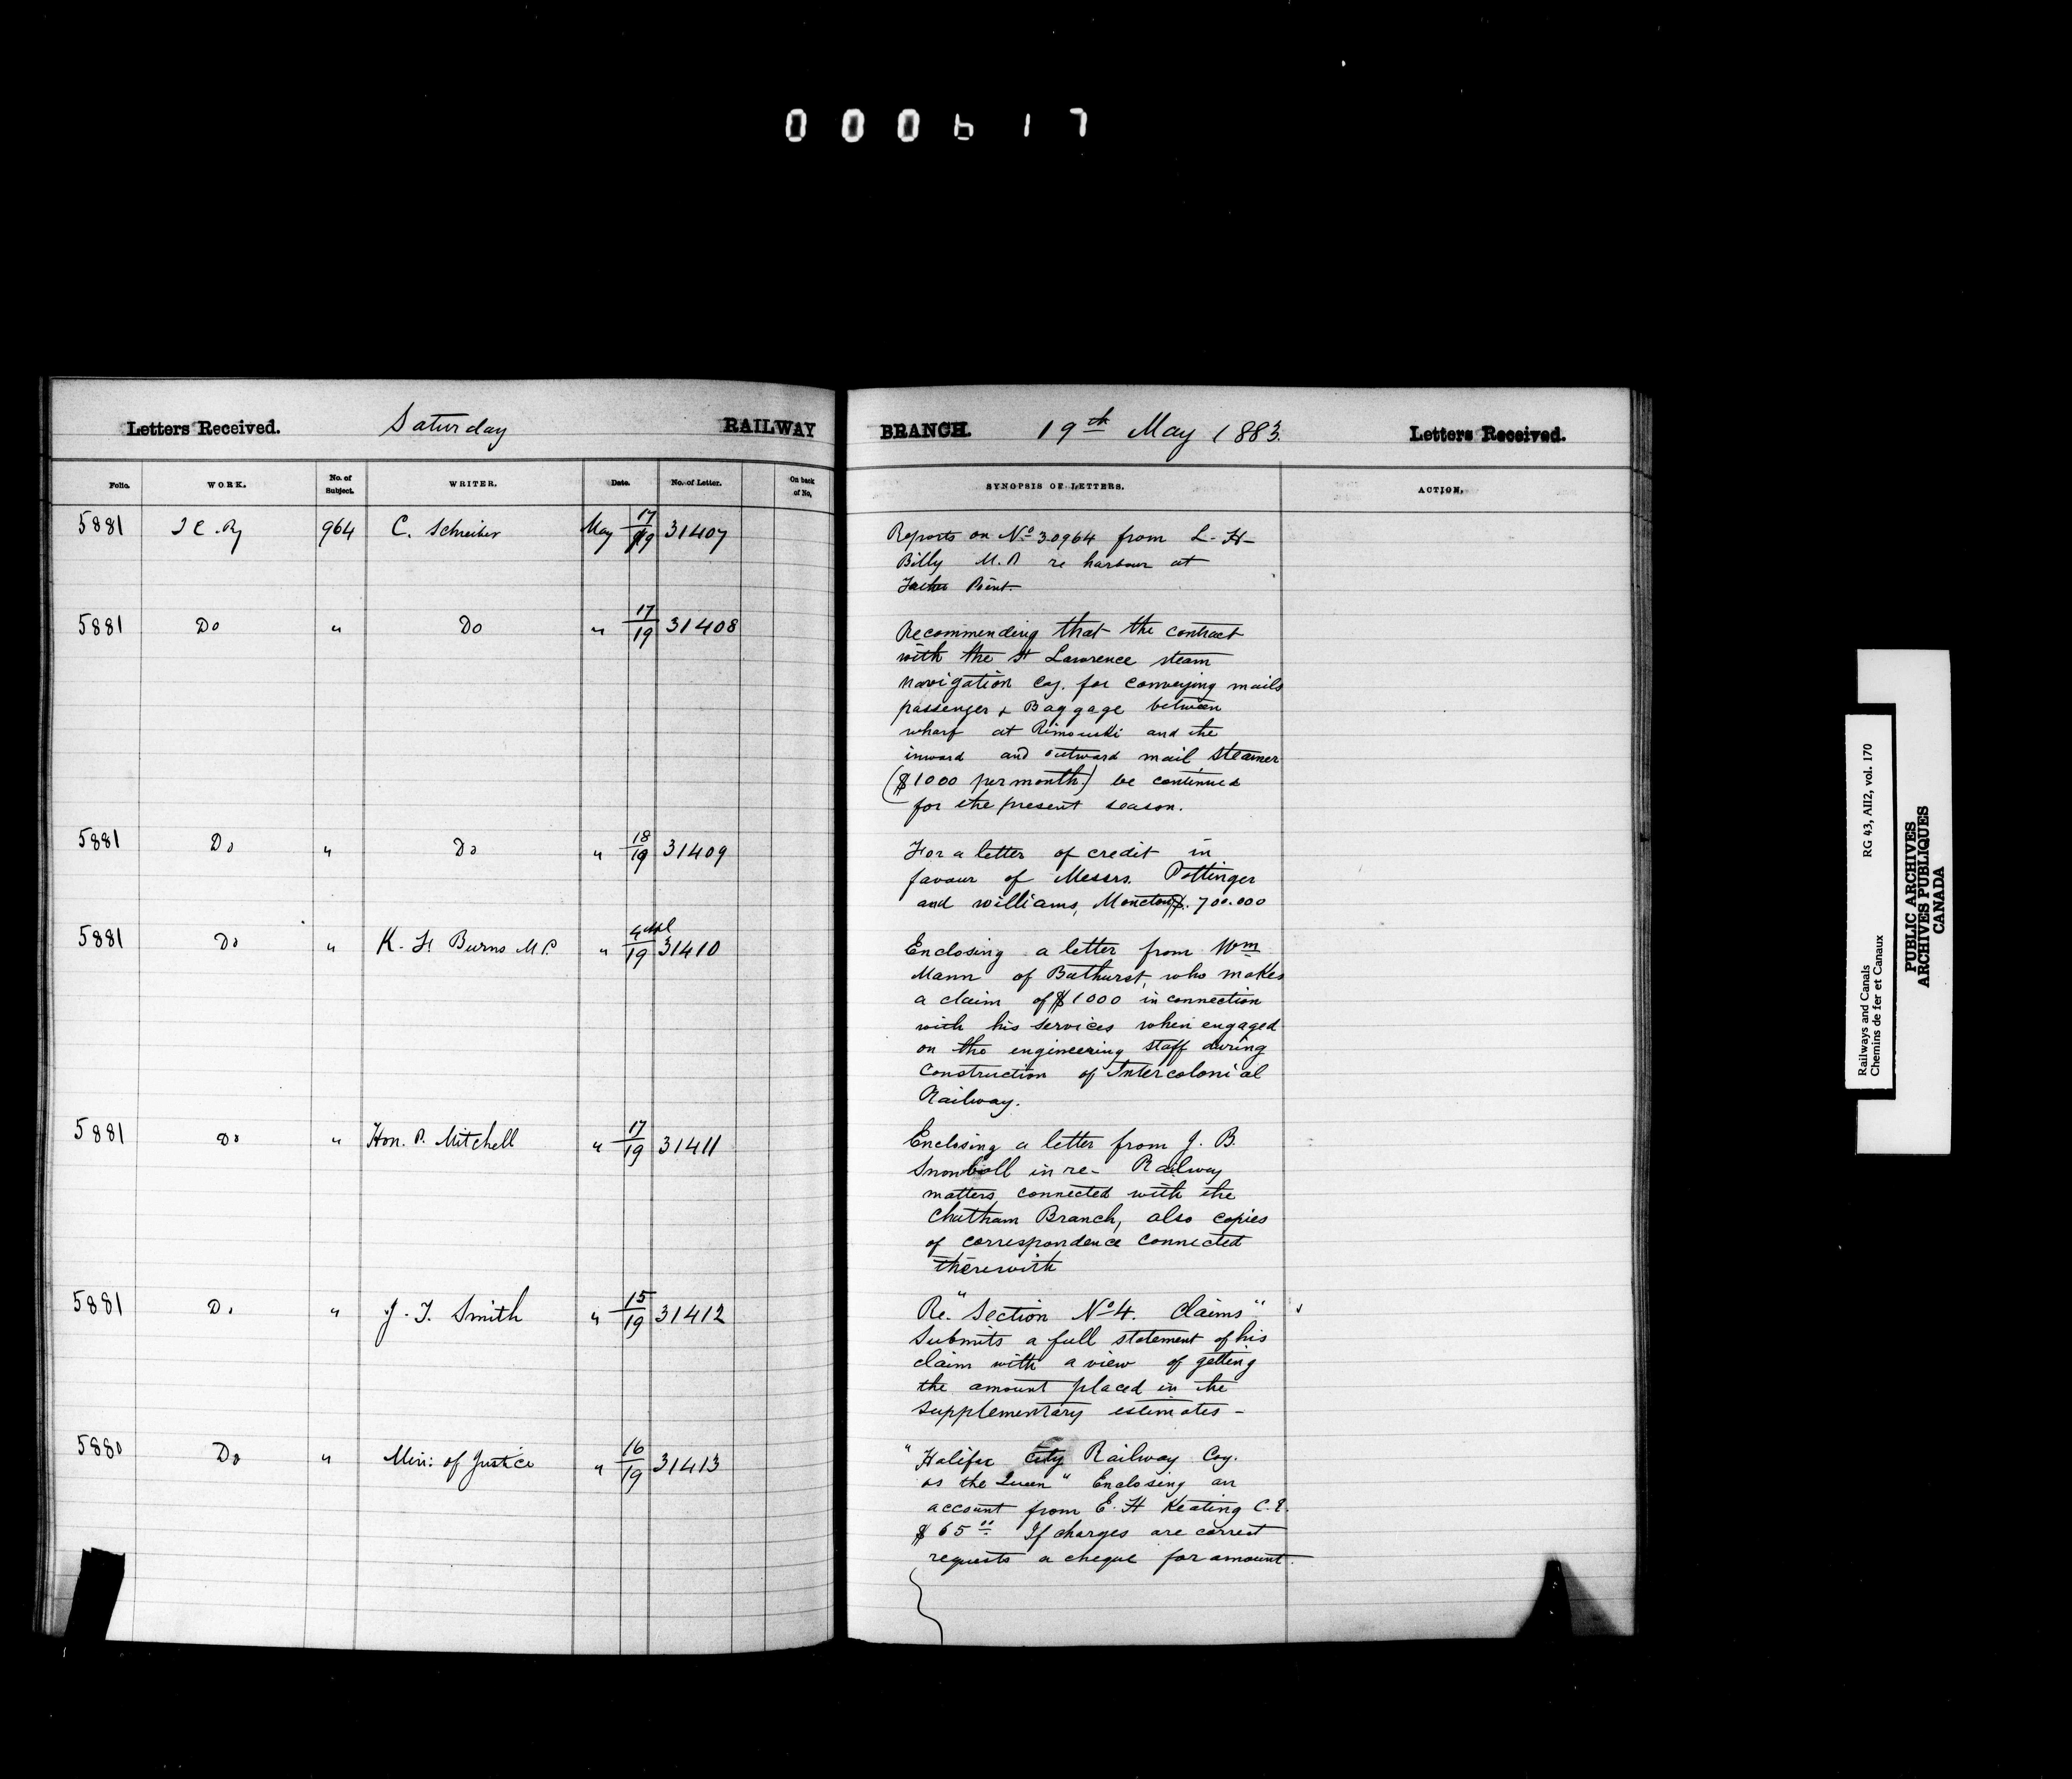 000617
Letters Received. Saturday RAILWAY BRANCH. 19th May 1883. Letters Received.
Folio. WORK. No. of Subject. WRITER. Date. No. of Letter. On back of No. SYNOPSIS OF LETTERS. ACTION.
5881 I C. Ry 964 C. Schreiber May 17/19 31407
Reports on No 30964 from L. H-
Billy M.P re harbour at
Father Point.
5881 Do " Do " 17/19 31408
Recommending that the contract
with the St Lawrence steam
navigation Coy. for conveying mails
passenger & Baggage between
wharf at Rimouski and the
inward and outward mail steamer
($1000 per month) be continued
for the present season.
5881 Do " Do " 18/19 31409
For a letter of credit in
favour of Messrs. Pottinger
and williams, Moncton $.700.000
5881 Do " K. F. Burns M P. " 4 Apl/19 31410
Enclosing a letter from Wm
Mann of Bathurst, who makes
a claim of $1000 in connection
with his services when engaged
on the engineering staff during
construction of Intercolonial
Railway.
5881 Do " Hon. P. Mitchell " 17/19 31411
Enclosing a letter from J. B.
Snowball in re- Railway
matters connected with the
Chatham Branch, also copies
of correspondence connected
therewith
5881 Do " J. T. Smith " 15/19 31412
Re. "Section No 4. Claims"
Submits a full statement of his
claim with a view of getting
the amount placed in the
supplementary estimates -
5880 Do " Min: of Justice " 16/19 31413
"Halifax City Railway Coy.
vs the Queen" Enclosing an
account from E. H Keating C.E.
$65.00 If charges are correct
requests a cheque for amount.
Railways and Canals RG 43, AII2, vol. 170
Chemins de fer et Canaux
PUBLIC ARCHIVES
ARCHIVES PUBLIQUES
CANADA